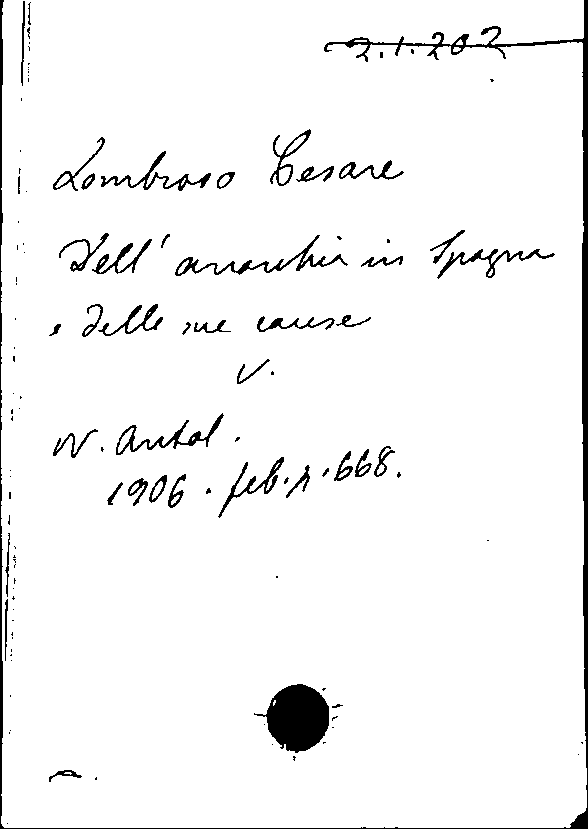 2.1.202
Lombroso Cesare
Dell' anarchia in Spagna
e delle sue cause
V.
N. Antol.
1906. feb. p. 668.